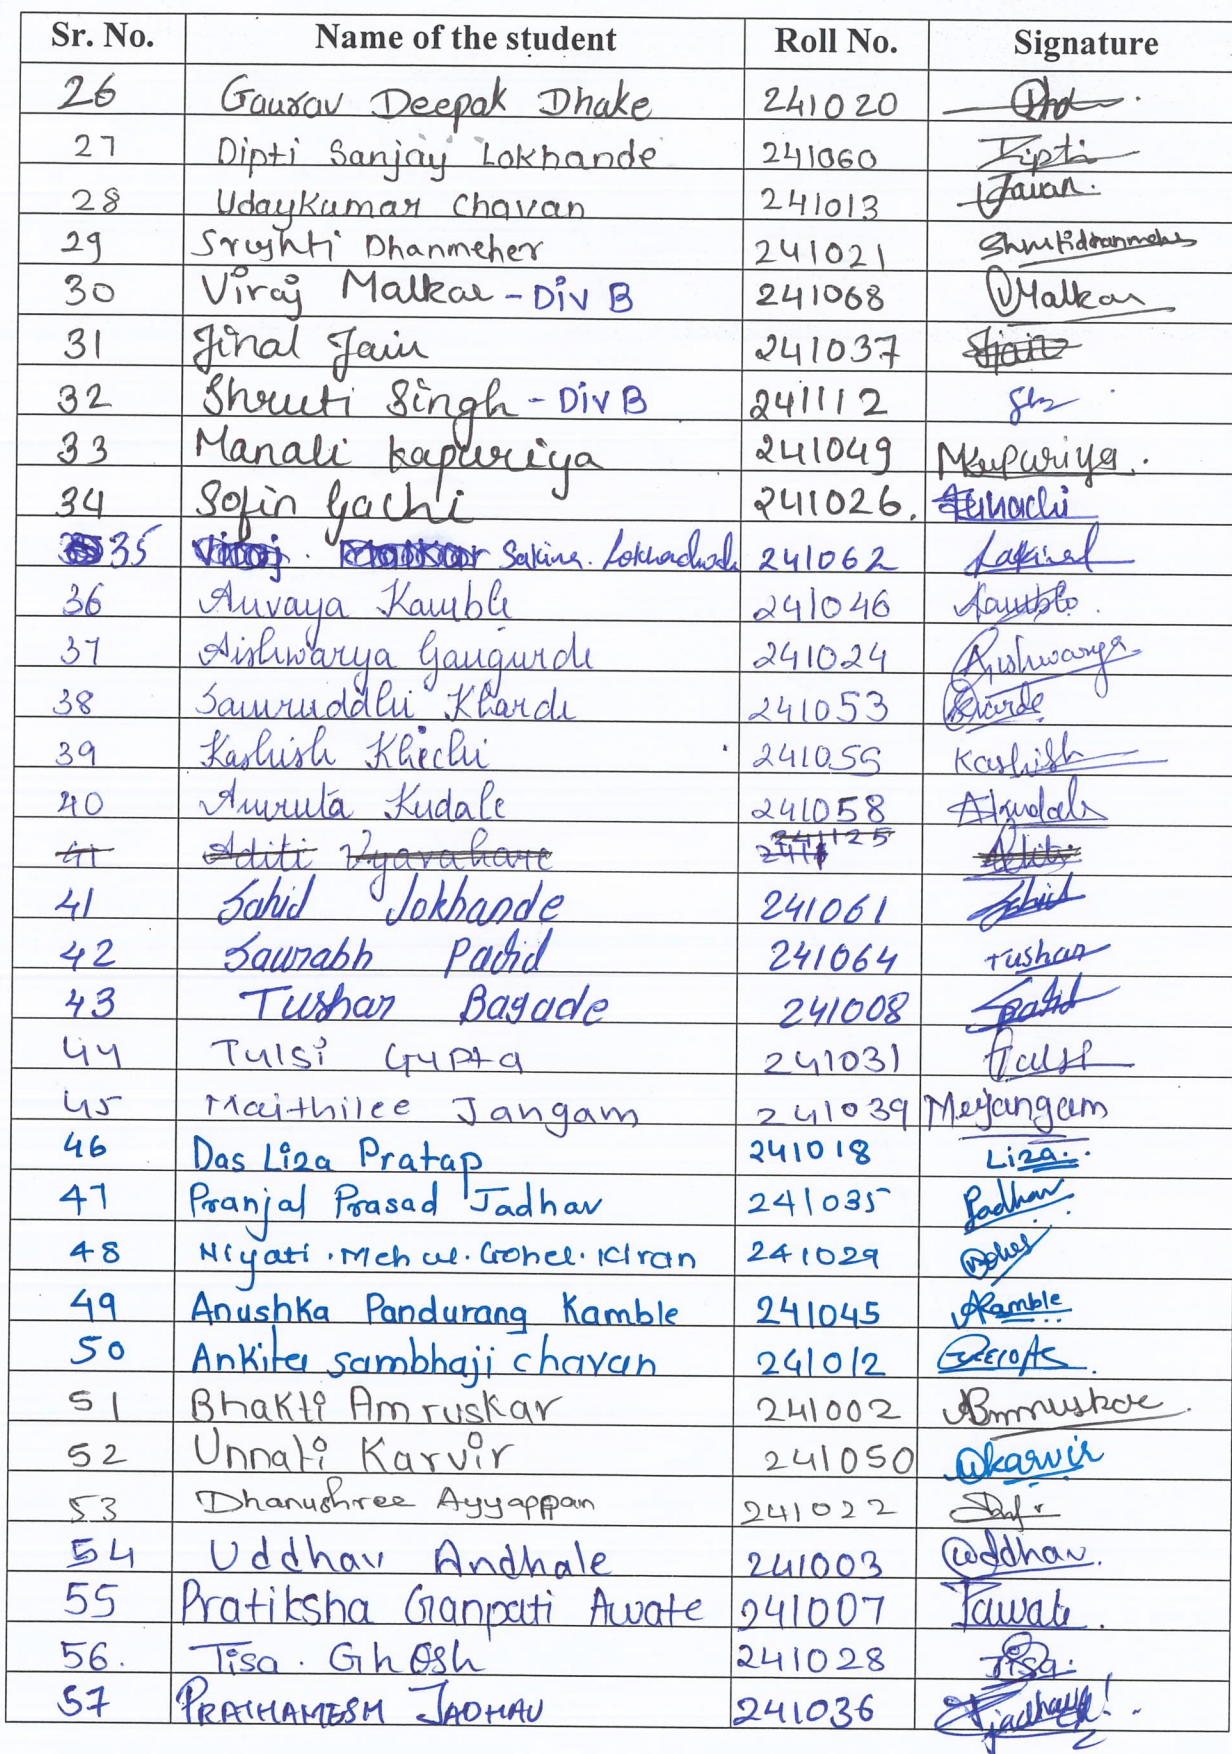 Sr. No. Name of the student Roll No. Signature
26 Gaurav Deepak Dhake 241020
27 Dipti Sanjay Lokhande 241060 Dipti
28 Udaykumar Chavan 241013
29 Srushti Dhanmeher 241021
30 Viraj Malkar - Div B 241068 VMalkar
31 Jinal Jain 241037 Jjain
32 Shruti Singh - Div B 241112
33 Manali Kapuriya 241049 MKapuriya.
34 Sofin Gachi 241026.
35 Viraj. Malkar Sakina. Lokhandwala 241062
36 Anvaya Kamble 241046 Akamble.
37 Aishwarya Gangurde 241024 Aishwarya
38 Samruddhi Kharde 241053 Skharde
39 Kashish Khichi 241055 Kashish
40 Amruta Kudale 241058 AKudale
41 Aditi Vyavahare 241125 Aditi
41 Sahid Lokhande 241061 Sahid
42 Saurabh Padid 241064 Tushar
43 Tushar Bagade 241008 Spadid
44 Tulsi Gupta 241031 Tulsi
45 Maithilee Jangam 241039 Mejangam
46 Das Liza Pratap 241018 Liza.
47 Pranjal Prasad Jadhav 241035 Pjadhav
48 Niyati. Mehul. Gohel. Kiran 241029
49 Anushka Pandurang Kamble 241045 AKamble
50 Ankita sambhaji chavan 241012
51 Bhakti Amruskar 241002 BAmruskar
52 Unnati Karvir 241050 Ukarvir
53 Dhanushree Ayyappan 241022
54 Uddhav Andhale 241003 Uddhav.
55 Pratiksha Ganpati Awate 241007 Pawate.
56. Tisa. Ghosh 241028 Tisa.
57 PRATHAMESH JADHAV 241036 Pjadhav